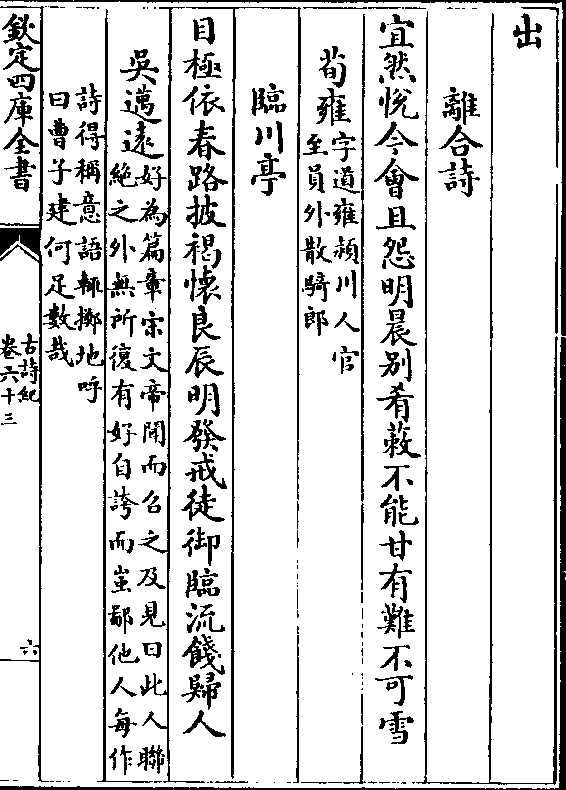 出
離合詩
宜然悅今會且怨明晨別肴蔌不能甘有難不可雪
荀雍字道雍潁川人官
至員外散騎郎
臨川亭
目極依春路披褐懷良辰明發戒徒御臨流餞歸人
吳邁遠好為篇章宋文帝聞而召之及見曰此人聯
絶之外無所復有好自誇而蚩鄙他人每作
詩得稱意語輒擲地呼
曰曹子建何足數哉
欽定四庫全書
古詩紀
卷六十三
六